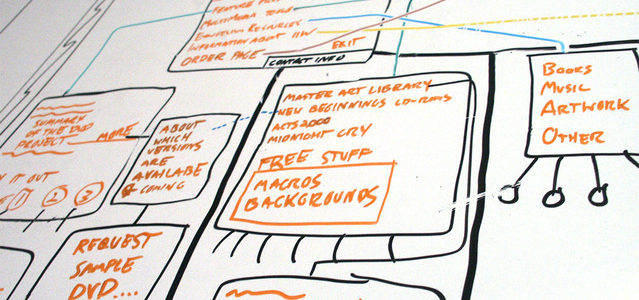 FEATURE
MULTIMEDIA TOOLS
EDUCATION RESOURCES
INFORMATION ABOUT IIW
ORDER PAGE
EXIT
CONTACT INFO
SUMMARY
OF THE DVD
PROJECT
MORE
IT OUT
1 2 3
ABOUT
WHICH
VERSIONS
ARE
AVAILABLE
& COMING
MASTER ART LIBRARY
NEW BEGINNINGS CD-ROMS
ACTS 2000
MIDNIGHT CRY
FREE STUFF
MACROS
BACKGROUNDS
BOOKS
MUSIC
ARTWORK
OTHER
REQUEST
SAMPLE
DVD....